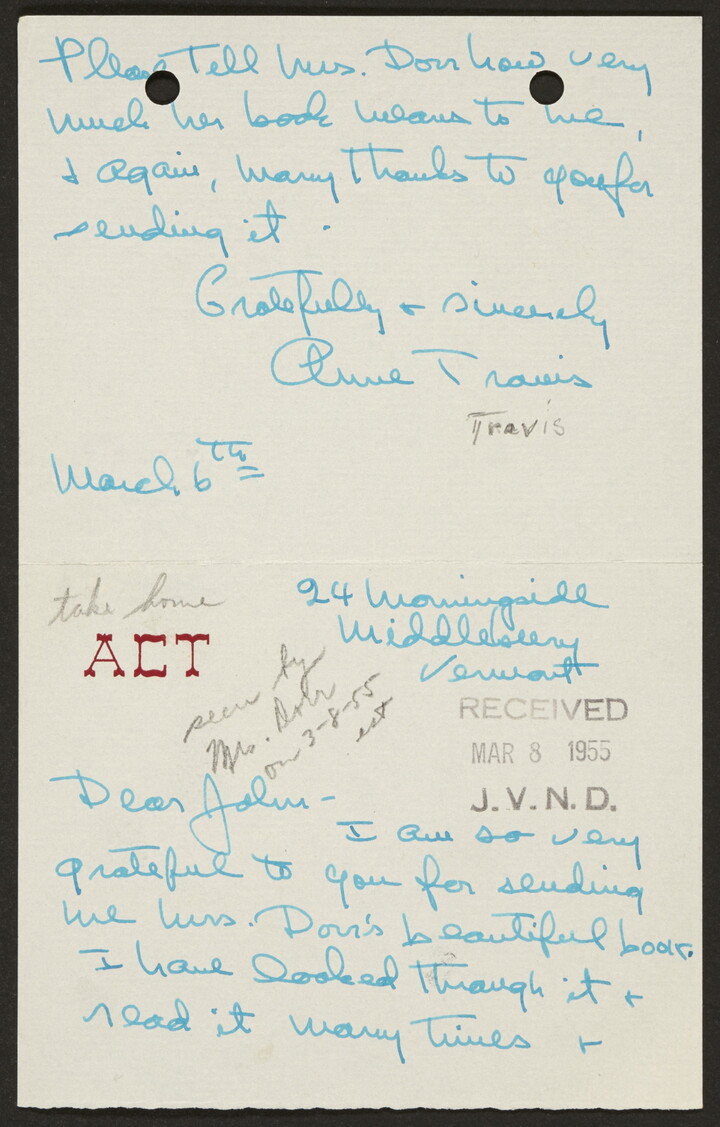 Please Tell Mrs. Dorr how very
much her book means to me,
& again, many thanks to you for
sending it.
Gratefully & sincerely
Anne Travis
Travis
March 6th
take home
ACT
24 Morningside
Middlebury
Vermont
seen by
Mrs. Dorr
on 3-8-55
est
RECEIVED
MAR 8 1955
J.V.N.D.
Dear John -
I am so very
grateful to you for sending
me Mrs. Dorr's beautiful book.
I have looked through it &
read it many times &